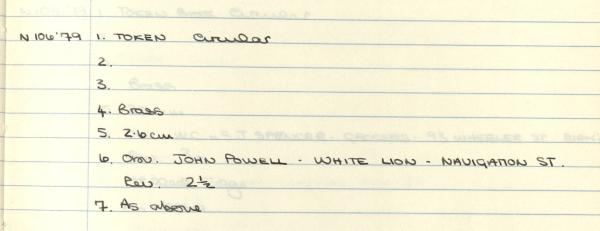 N106'79 1. TOKEN Circular
2.
3.
4. Brass
5. 2.6cm
6. Obv. JOHN POWELL - WHITE LION - NAVIGATION ST.
Rev. 2½
7. As above